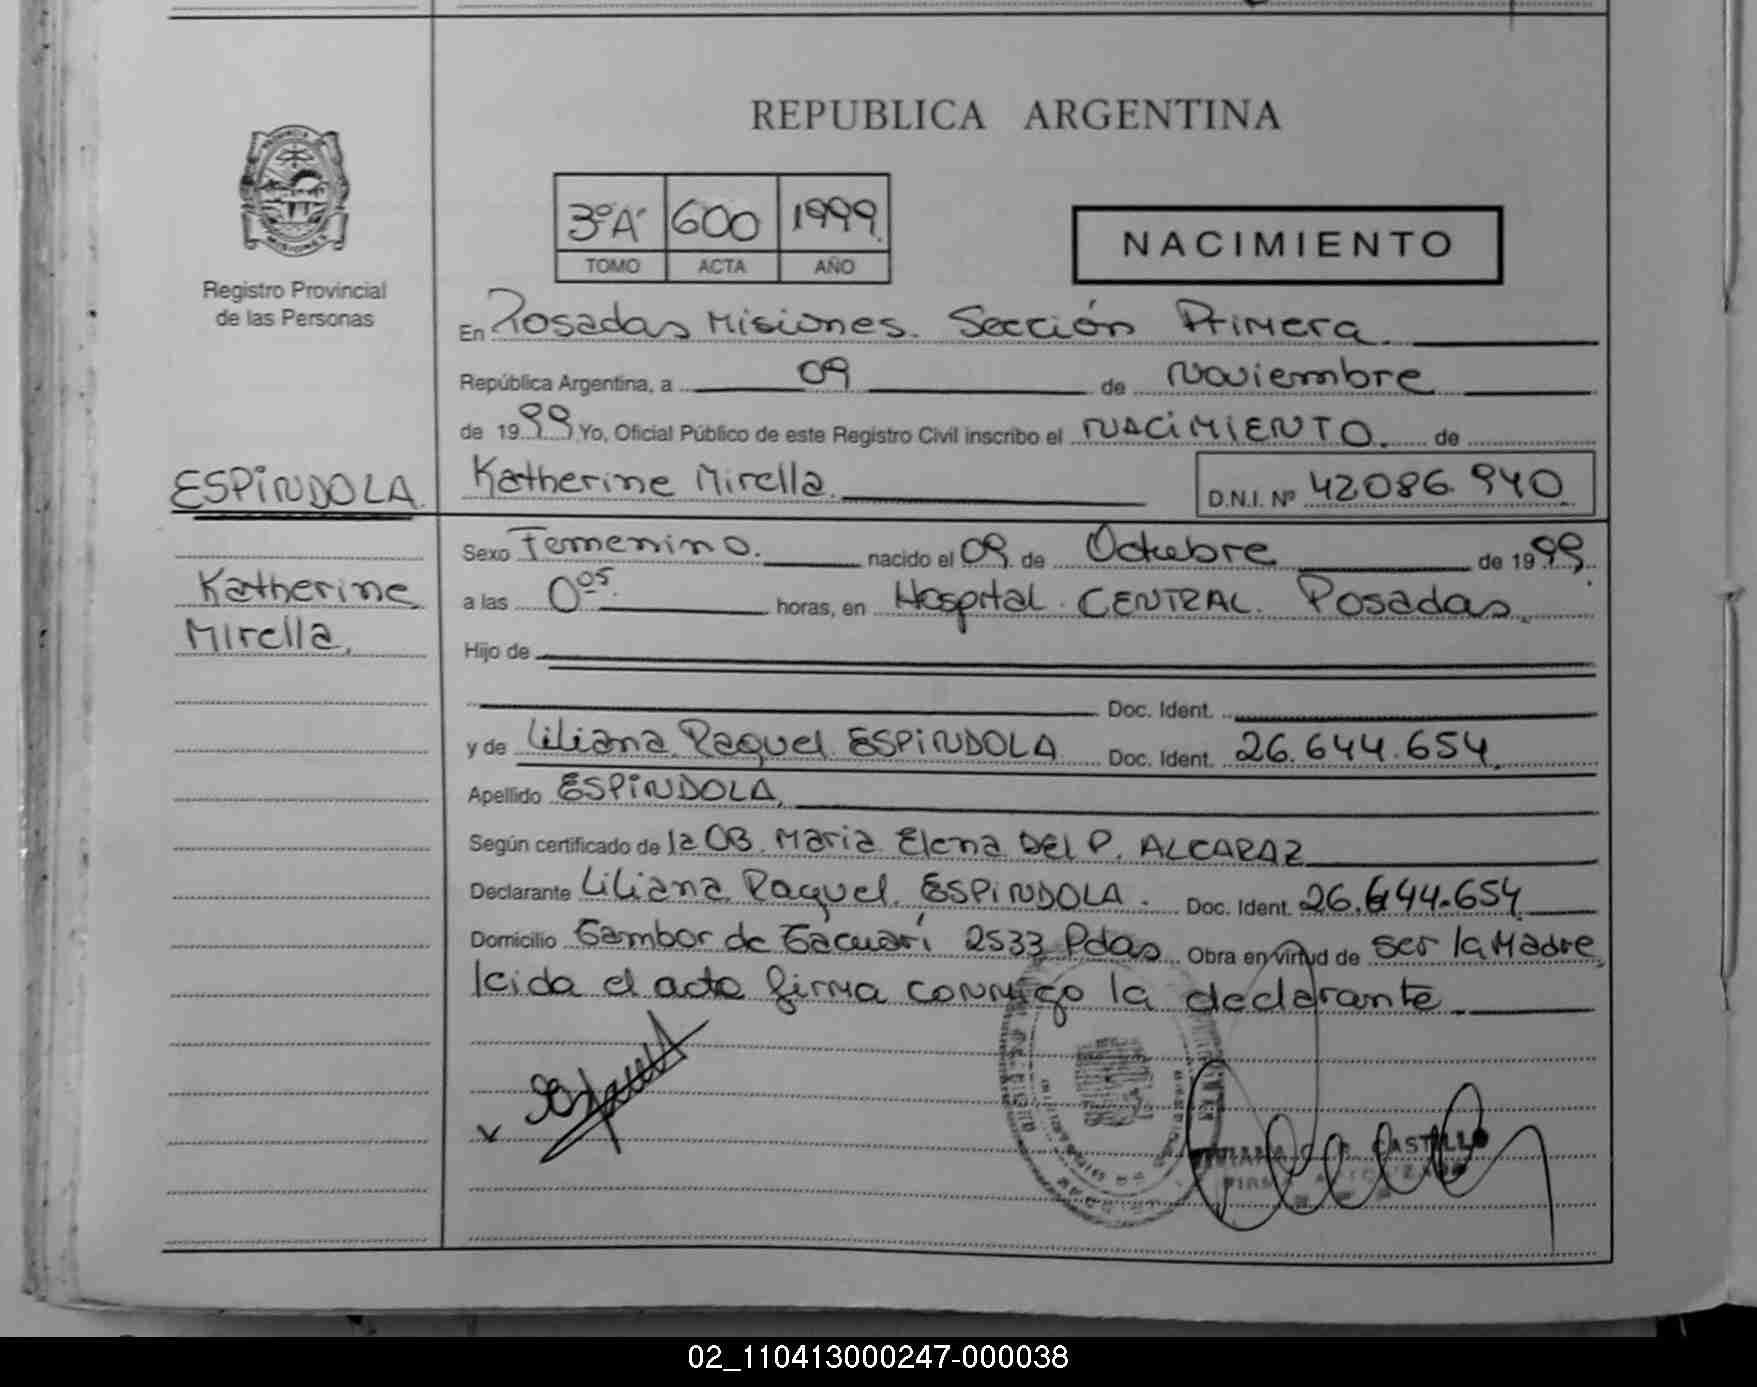 REPUBLICA ARGENTINA
3ºA 600 1999.
TOMO ACTA AÑO
NACIMIENTO
Registro Provincial
de las Personas
En Posadas Misiones. Sección Primera.
República Argentina, a 09 de Noviembre
de 1999 Yo, Oficial Público de este Registro Civil inscribo el NACIMIENTO. de
ESPINDOLA.
Katherine Mirella. D.N.I. Nº 42086.940
Katherine
Mirella.
Sexo Femenino. nacido el 09. de Octubre de 1999.
a las 0 05. horas, en Hospital CENTRAL. Posadas.
Hijo de
Doc. Ident.
y de Liliana Raquel ESPINDOLA Doc. Ident. 26.644.654.
Apellido ESPINDOLA.
Según certificado de la OB. Maria Elena Del P. ALCARAZ
Declarante Liliana Raquel. ESPINDOLA. Doc. Ident. 26.644.654
Domicilio Tambor de Tacuarí 2533 Pdas Obra en virtud de ser la Madre,
leida el acta firma conmigo la declarante.
CASTILLO
02_110413000247-000038